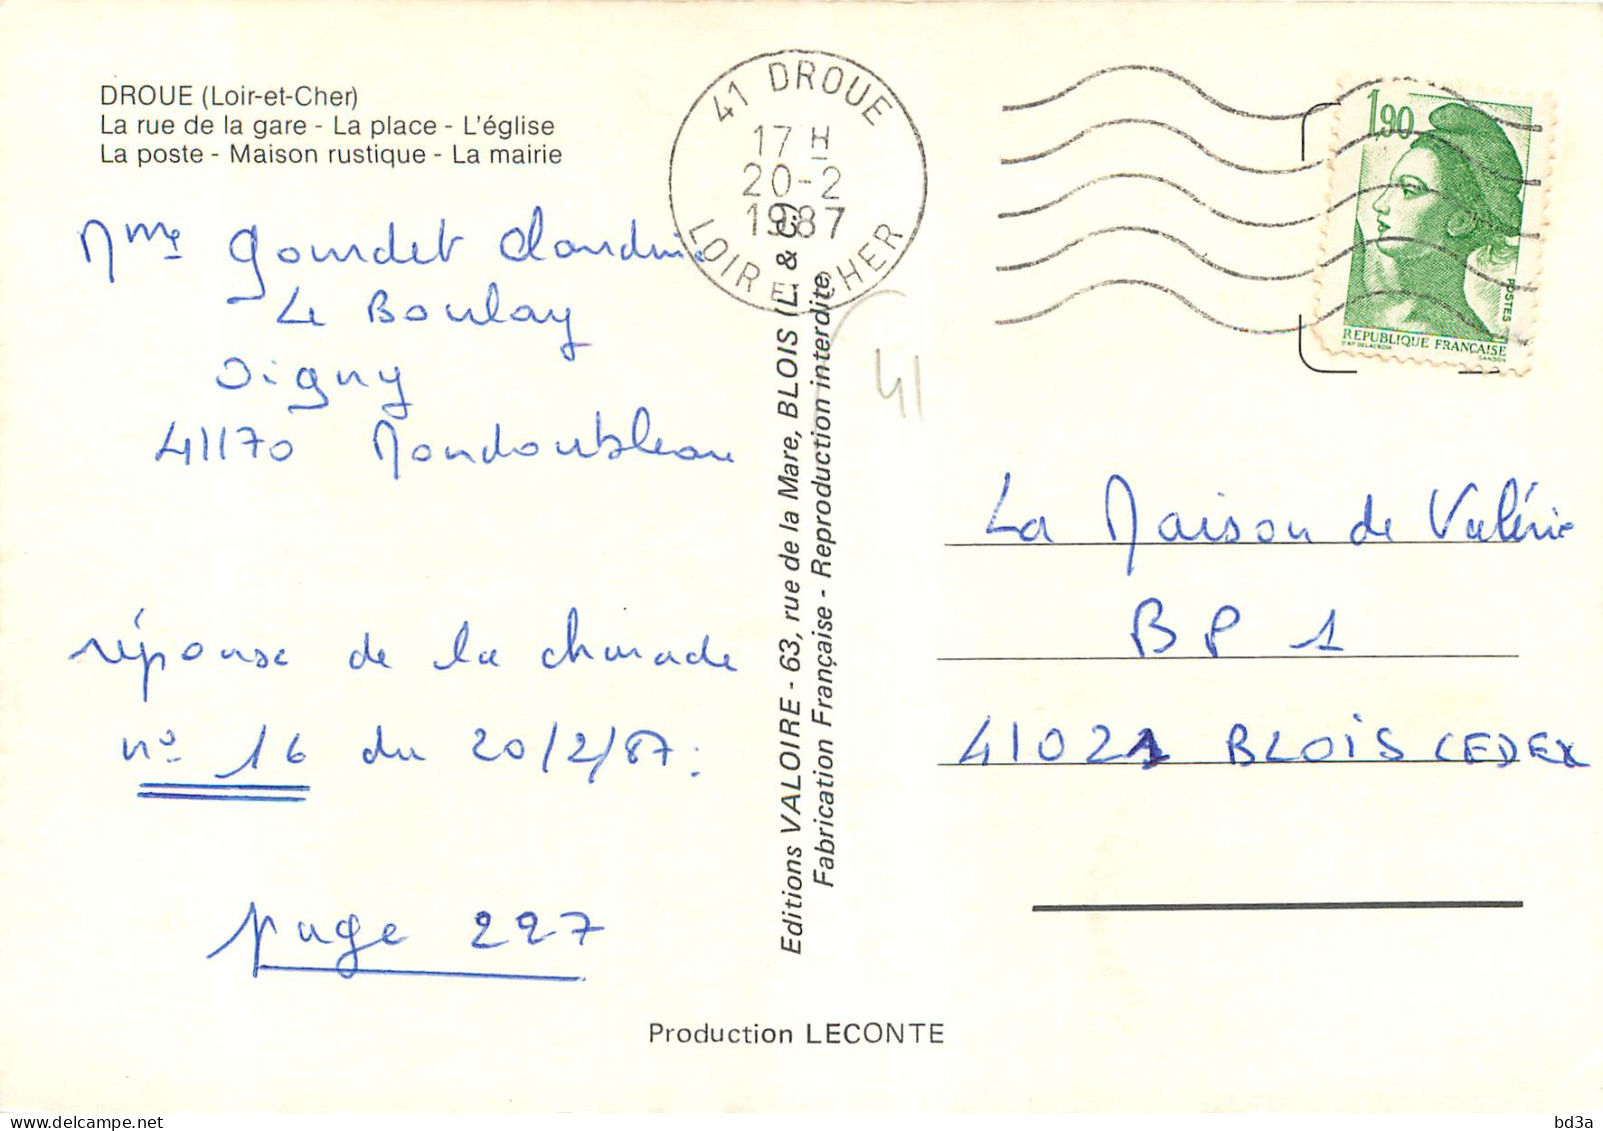 DROUE (Loir-et-Cher)
La rue de la gare - La place - L'église
La poste - Maison rustique - La mairie
Mme Gourdet Claudine
Le Boulay
Oigny
41170 Mondoubleau
réponse de la charade
n° 16 du 20/2/87:
page 227
Editions VALOIRE - 63, rue de la Mare, BLOIS (L. & C.)
Fabrication Française - Reproduction interdite
Production LECONTE
41 DROUE
17 H
20-2
1987
LOIR ET CHER
1,90
POSTES
REPUBLIQUE FRANÇAISE
D'AP. DELACROIX
GANDON
41
La Maison de Valérie
BP 1
41021 BLOIS CEDEX
delcampe.net
bd3a